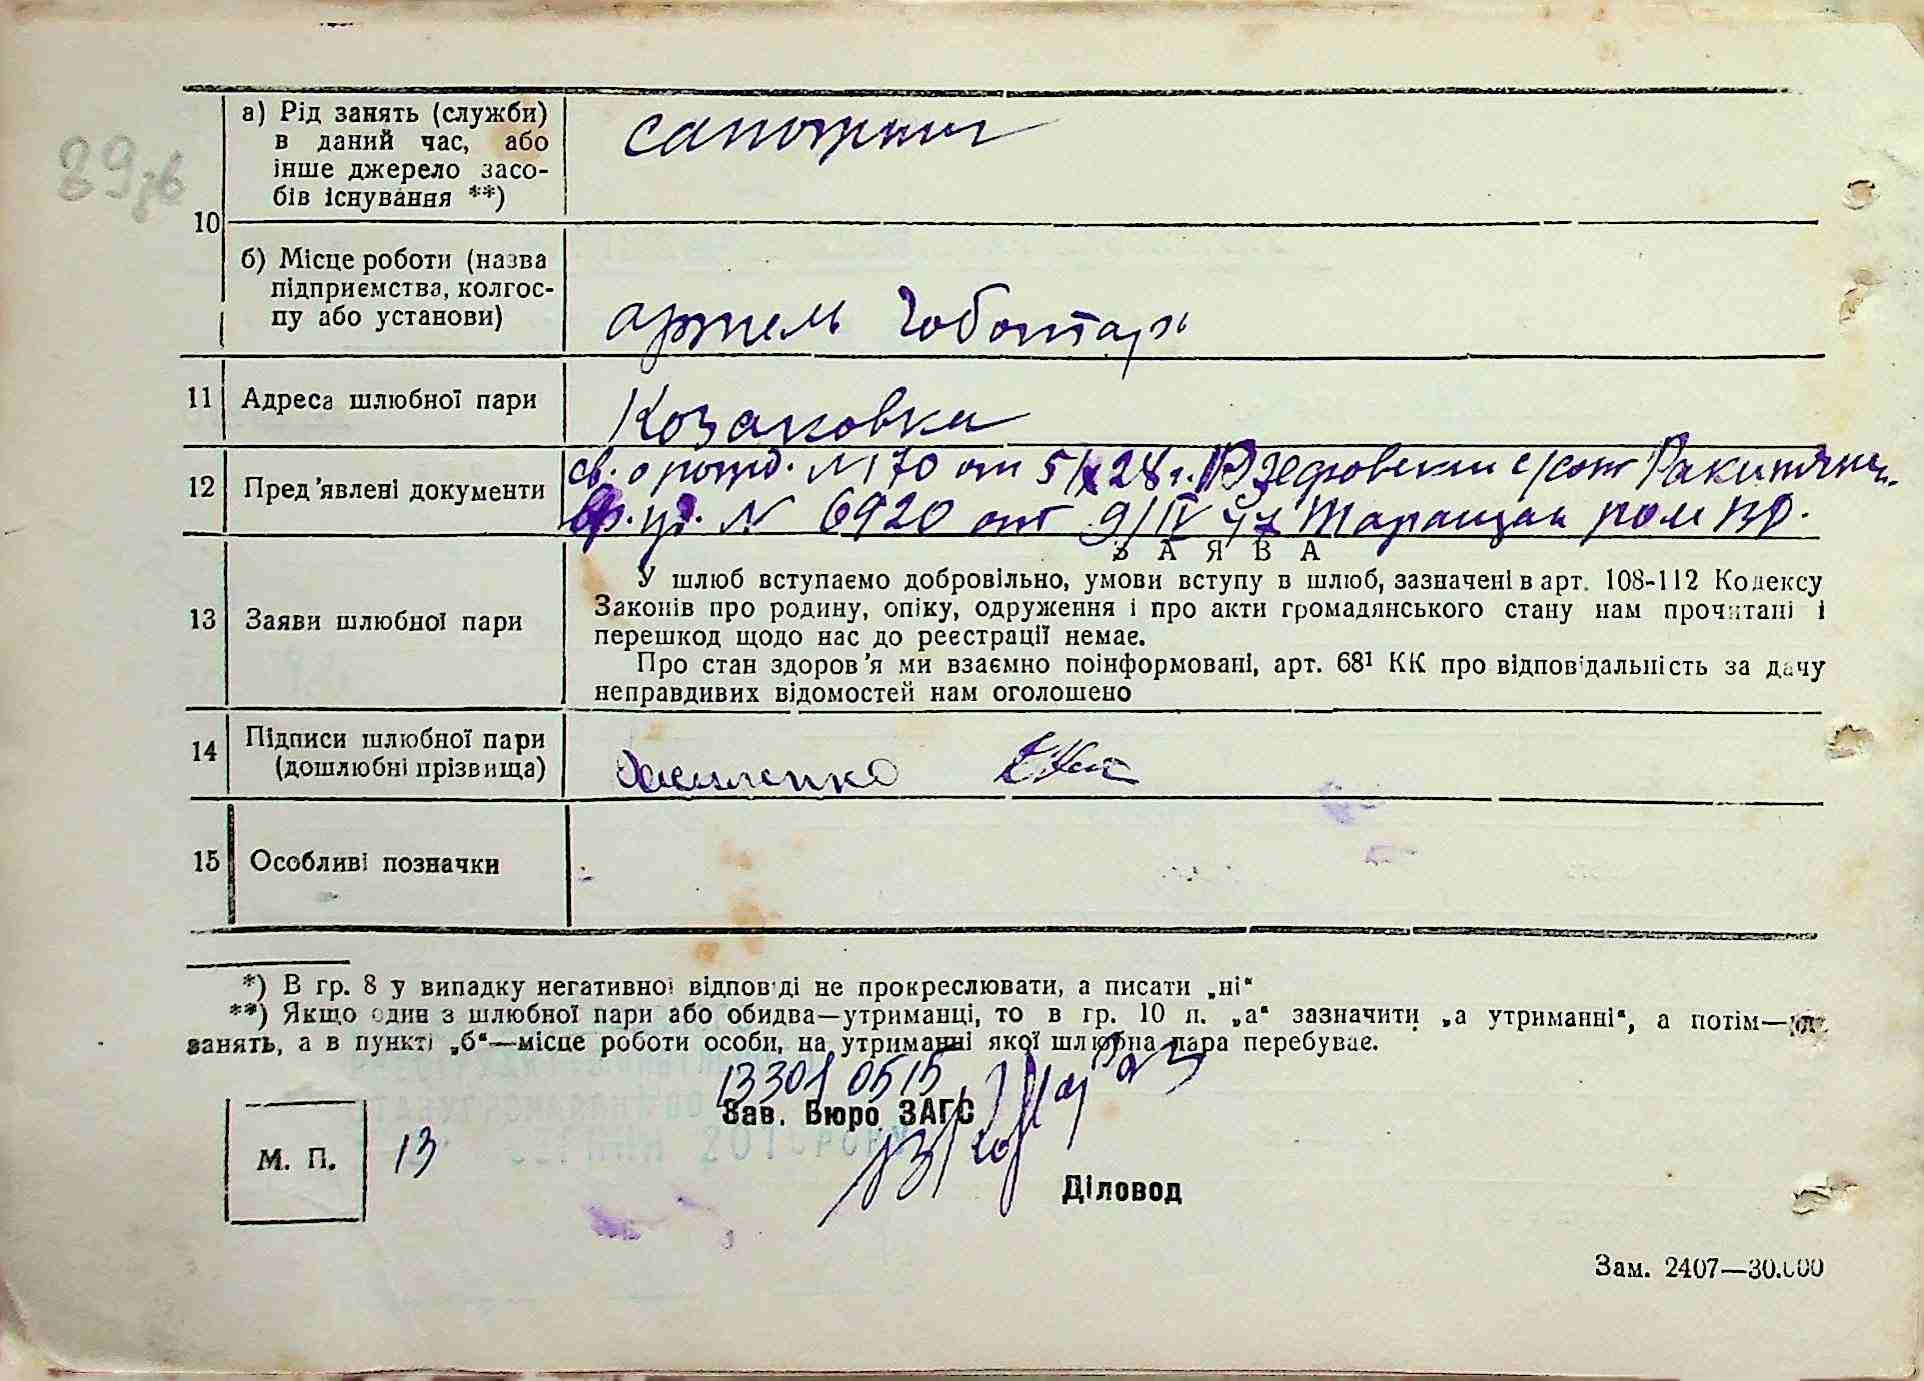 89 зв
10
а) Рід занять (служби)
в даний час, або
інше джерело засо-
бів існування **)
сапожник
б) Місце роботи (назва
підприємства, колгос-
пу або установи)
артель Чоботарь
11 Адреса шлюбної пари
Козаковка
12 Пред'явлені документи
св. о рожд. N 170 от 5/X 28 г. с/сов Ракитян.
вр. уд. N 6920 от 9/IV 47 Таращан ром
ЗАЯВА
13 Заяви шлюбної пари
У шлюб вступаємо добровільно, умови вступу в шлюб, зазначені в арт. 108-112 Кодексу
Законів про родину, опіку, одруження і про акти громадянського стану нам прочитані і
перешкод щодо нас до реєстрації немає.
Про стан здоров'я ми взаємно поінформовані, арт. 68¹ КК про відповідальність за дачу
неправдивих відомостей нам оголошено
14 Підписи шлюбної пари
(дошлюбні прізвища)
15 Особливі позначки
*) В гр. 8 у випадку негативної відповіді не прокреслювати, а писати „ні“
**) Якщо один з шлюбної пари або обидва—утриманці, то в гр. 10 п. „а“ зазначити „а утриманні“, а потім—
занять, а в пункті „б“—місце роботи особи, на утриманні якої шлюбна пара перебуває.
13301 0515
Зав. Бюро ЗАГС
М. П.
13
Діловод
Зам. 2407—30.000